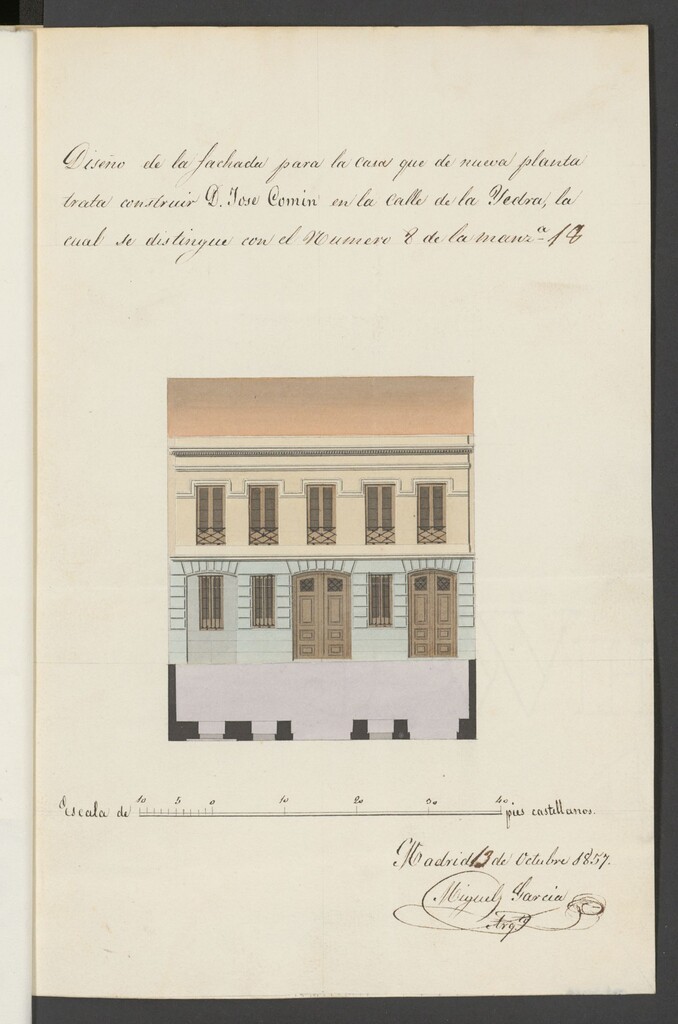 Diseño de la fachada para la casa que de nueva planta
trata construir D. Jose Comin en la Calle de la Yedra, la
cual se distingue con el Numero 8 de la manz.ª 18
Escala de 10 5 0 10 20 30 40 pies castellanos.
Madrid 13 de Octubre 1857.
Miguel Garcia